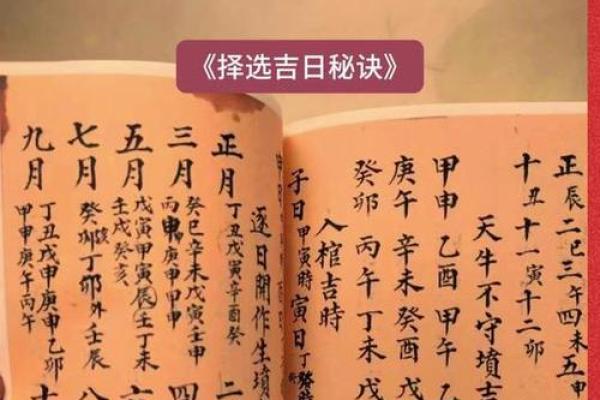 《择选吉日秘诀》
正辰二巳三午四未五申
十丑十一寅十二卯
天牛不守墳
甲申 乙酉 甲午 乙
庚午 辛未 癸酉 戊
癸卯 丙午 丁未 戊
入棺吉時
子日甲寅時寅日丁癸時
逐日開作生墳
正月 丁丑戊寅辛酉癸 二
三月 癸巳辛未戊寅壬申
丙申庚申甲申 四
五月 戊寅甲寅
壬戌癸亥 六
七月 癸卯丁卯外壬辰 八
九月 丁丑戊申庚申乙卯
甲申庚午丙午 十